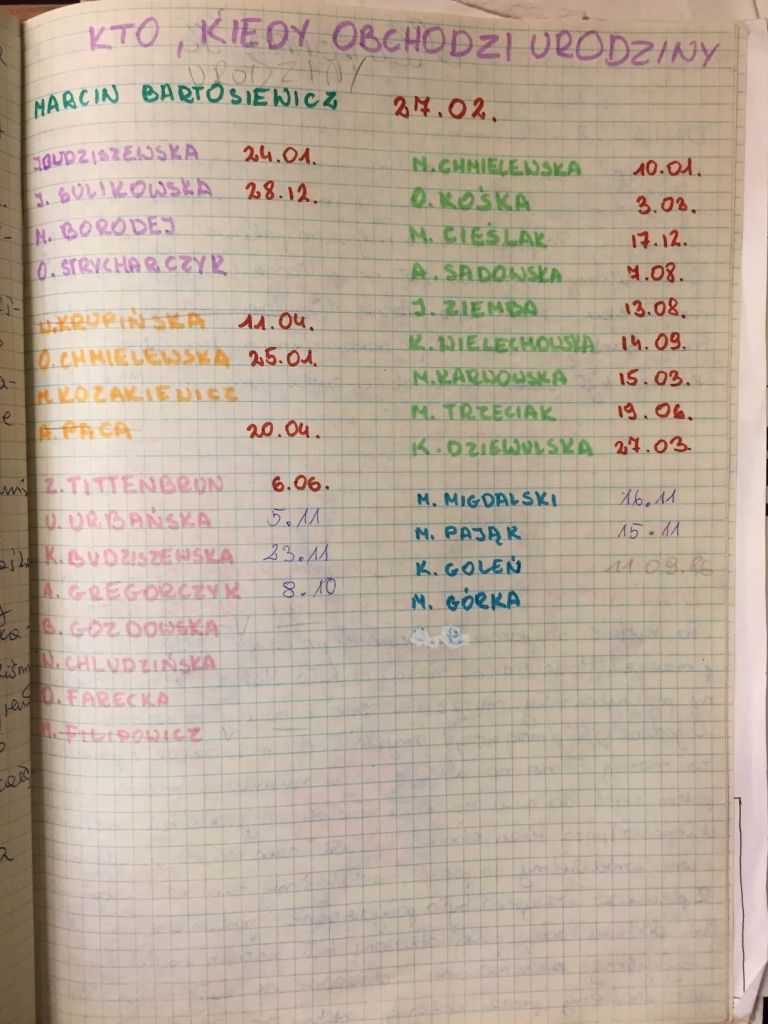 KTO, KIEDY OBCHODZI URODZINY
URODZINY
MARCIN BARTOSIEWICZ 27.02.
J.BUDZISZEWSKA 24.01.
J. GULIKOWSKA 28.12.
M. BORODEJ
O. STRYCHARCZYK
U.KRUPIŃSKA 11.04.
O.CHMIELEWSKA 25.01.
M.KOZAKIEWICZ
A.PACA 20.04.
Z.TITTENBRUN 6.06.
U.URBAŃSKA 5.11
K.BUDZISZEWSKA 23.11
A. GREGORCZYK 8.10
B. GOZDOWSKA
N.CHLUDZIŃSKA
O. FARECKA
M. FILIPOWICZ
M.CHMIELEWSKA 10.01.
O. KOŚKA 3.08.
M. CIEŚLAK 17.12.
A. SADOWSKA 7.08.
J. ZIEMBA 13.08.
K.NIELECHOWSKA 14.09.
M.KARWOWSKA 15.03.
M. TRZECIAK 19.06.
K.DZIEWULSKA 27.03.
M. MIGDALSKI 16.11
M. PAJĄK 15.11
K. GOLEŃ 11.09.86
M. GÓRKA